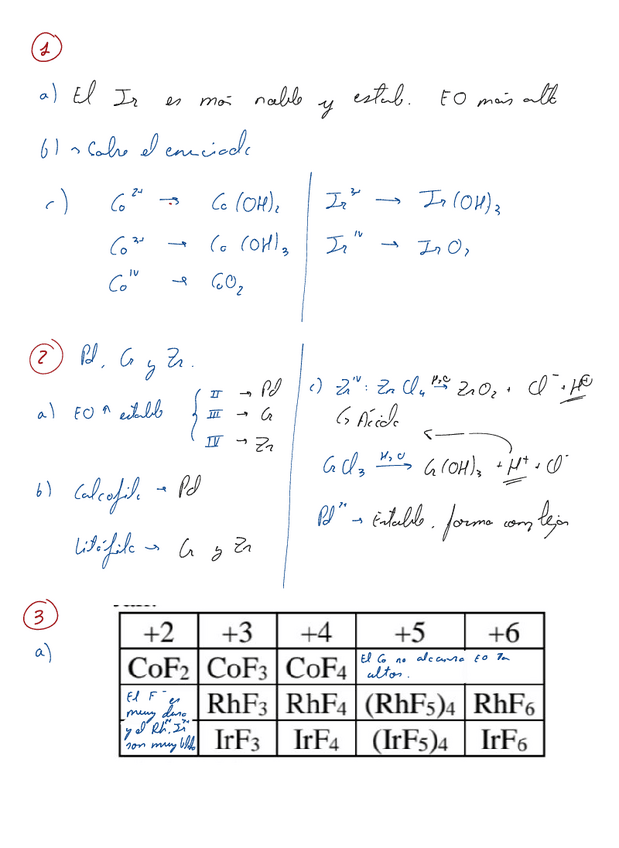 1
a) El Ir es más noble y estab. EO más alto
b) → Sobre el enunciado
c) Co²⁺ → Co(OH)₂
Co³⁺ → Co(OH)₃
Co^IV → CoO₂
Ir³⁺ → Ir(OH)₃
Ir^IV → IrO₂
2 Pd, Cr y Zr.
a) EO + estable
II → Pd
III → Cr
IV → Zr
b) Calcófilo → Pd
Litófilo → Cr y Zr
c) Zr^IV: ZrCl₄ H₂O→ ZrO₂ + Cl⁻ + H⁺
↳ Ácido
CrCl₃ H₂O→ Cr(OH)₃ + H⁺ + Cl⁻
Pd²⁺ → Estable, forma complejos
3
a)
+2 +3 +4 +5 +6
CoF₂ CoF₃ CoF₄ El Co no alcanza EO tan altos.
El F⁻ es muy duro y el Rh²⁺, Ir²⁺ son muy blandos RhF₃ RhF₄ (RhF₅)₄ RhF₆
IrF₃ IrF₄ (IrF₅)₄ IrF₆